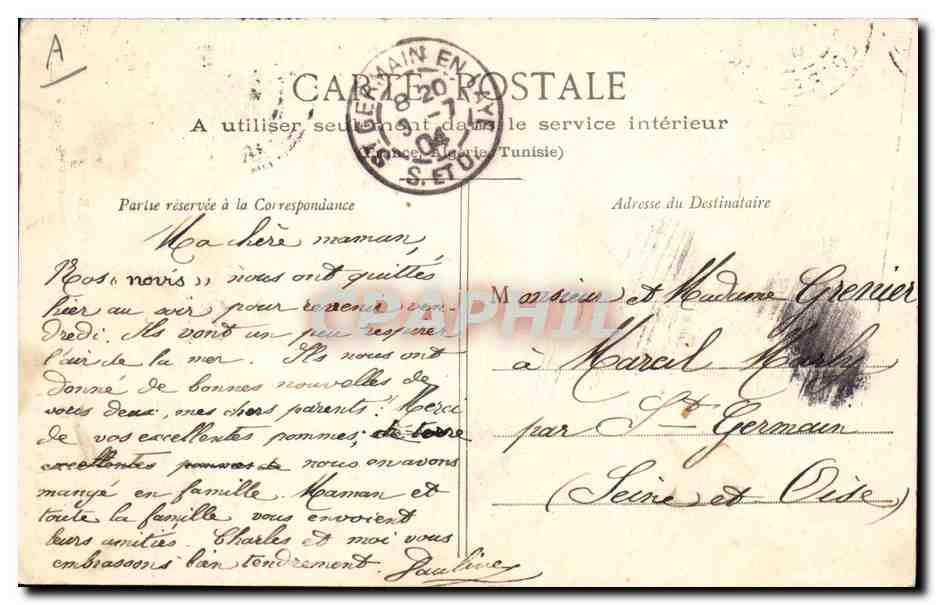 A
CARTE POSTALE
A utiliser seulement dans le service intérieur
(France, Algérie, Tunisie)
ST GERMAIN EN LAYE
8 20
9 -7
04
S. ET O.
Partie réservée à la Correspondance
Ma chère maman,
Nos « novis » nous ont quittés
hier au soir pour revenir ven-
dredi. Ils vont un peu respirer
l'air de la mer. Ils nous ont
donné de bonnes nouvelles de
vous deux, mes chers parents. Merci
de vos excellentes pommes, de terre
excellentes pommes de nous en avons
mangé en famille. Maman et
toute la famille vous envoient
leurs amitiés. Charles et moi vous
embrassons bien tendrement. Pauline
Adresse du Destinataire
Monsieur et Madame Grenier
à Mareil Marly
par St Germain
(Seine et Oise)
PAPHIL